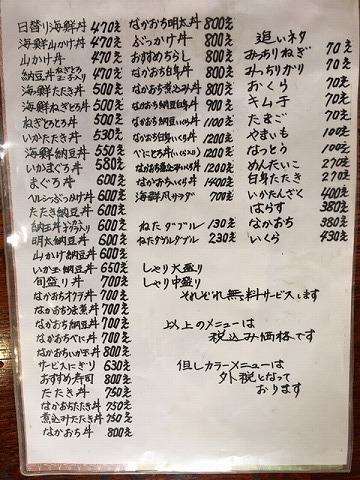 日替り海鮮丼 470え
海鮮山かけ丼 470え
山かけ丼 470え
納豆丼 ねぎとろ 玉子入り 470え
海鮮納豆丼 500え
海鮮ねぎとろ丼 500え
ねぎとろ丼 500え
いかたたき丼 530え
海鮮納豆丼 550え
いかまぐろ丼 580え
まぐろ丼 600え
ヘルシーぶっかけ丼 600え
たたき納豆丼 600え
納豆丼 600え
明太納豆丼 600え
山かけ納豆丼 600え
いか玉納豆丼 650え
旬盛り丼 700え
なかおちオクラ丼 700え
なかおち漬黒丼 700え
なかおち納豆丼 700え
なかおちべに丼 700え
なかおちいか玉丼 800え
サービスにぎり 630え
おすすめ寿司 800え
たたき丼 750え
なかおちたたき丼 750え
煮込みたたき丼 750え
なかおち丼 800え
なかおち明太丼 800え
ぶっかけ丼 800え
おすすめちらし 800え
なかおち白身丼 800え
なかおち煮込み丼 800え
なかおち納豆白身丼 900え
なかおち納豆いくら丼 1100え
なかおち白身いくら丼 1200え
べにとろ丼(いくら入り) 1200え
なかおち煮込みいくら丼 1200え
なかおちいくら丼 1400え
海鮮風サラダ 700え
ねた ダブル 130え
ねたダブルダブル 230え
追いネタ
みっちりねぎ 70え
みっちりガリ 70え
おくら 70え
キムチ 70え
たまご 70え
やまいも 100え
なっとう 100え
めんたいこ 270え
白身たたき 270え
いかたんざく 400え
はらす 380え
なかおち 380え
いくら 430え
しゃり大盛り
しゃり中盛り
それぞれ無料サービスします
以上のメニューは
税込み価格です
但しカラーメニューは
外税となって
おります